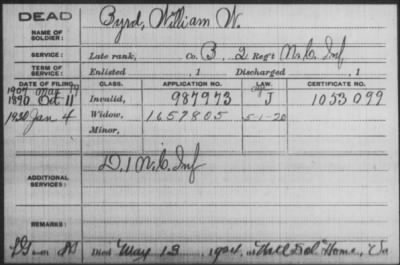 DEAD
NAME OF SOLDIER: Byrd, William W.
SERVICE: Late rank, Co. B, 2 Reg't N.C. Inf
TERM OF SERVICE: Enlisted , 1 Discharged , 1
DATE OF FILING. CLASS. APPLICATION NO. CERTIFICATE NO.
1907
1890 Oct 11 Invalid, 987973 J 1053099
1920 Jan 4 Widow, 1657805 5-1-20
Minor,
ADDITIONAL SERVICES: D. 1 N.C. Inf
REMARKS:
Died May 13, 1904, at Natl Sol Home, Va